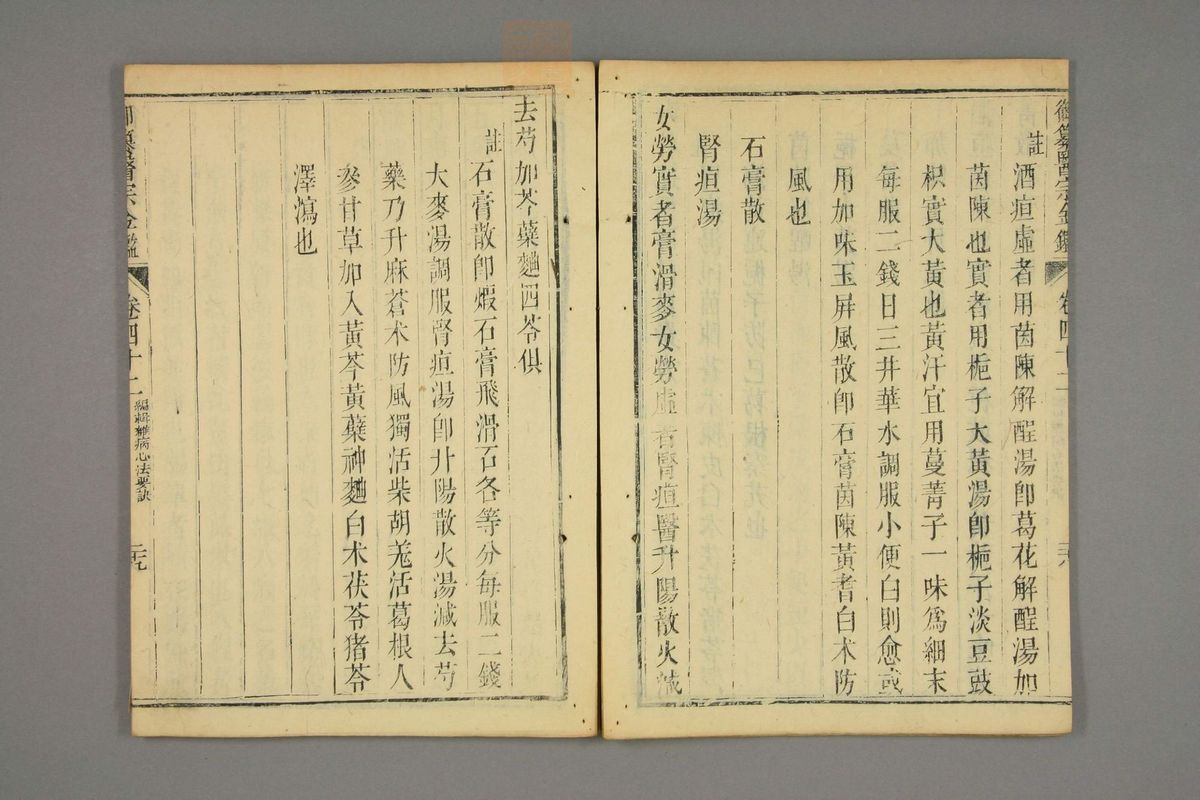 御纂醫宗金鑑 卷四十二 三八
註酒疸虛者用茵陳解酲湯卽葛花解酲湯加
茵陳也實者用梔子大黃湯卽梔子淡豆豉
枳實大黃也黃汗宜用蔓菁子一味爲細末
每服二錢日三井華水調服小便白則愈或
用加味玉屏風散卽石膏茵陳黃耆白朮防
風也
石膏散
腎疸湯
女勞實者膏滑麥女勞虛者腎疸醫升陽散火減
去芍加芩蘗麯四苓俱
註石膏散卽煆石膏飛滑石各等分每服二錢
大麥湯調服腎疸湯卽升陽散火湯減去芍
藥乃升麻蒼朮防風獨活柴胡羌活葛根人
參甘草加入黃芩黃蘗神麯白朮茯苓猪苓
澤瀉也
御纂醫宗金鑑 卷四十二 編輯雜病心法要訣 三九